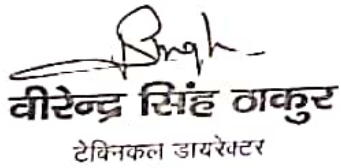 Singh
वीरेन्द्र सिंह ठाकुर
टेक्निकल डायरेक्टर